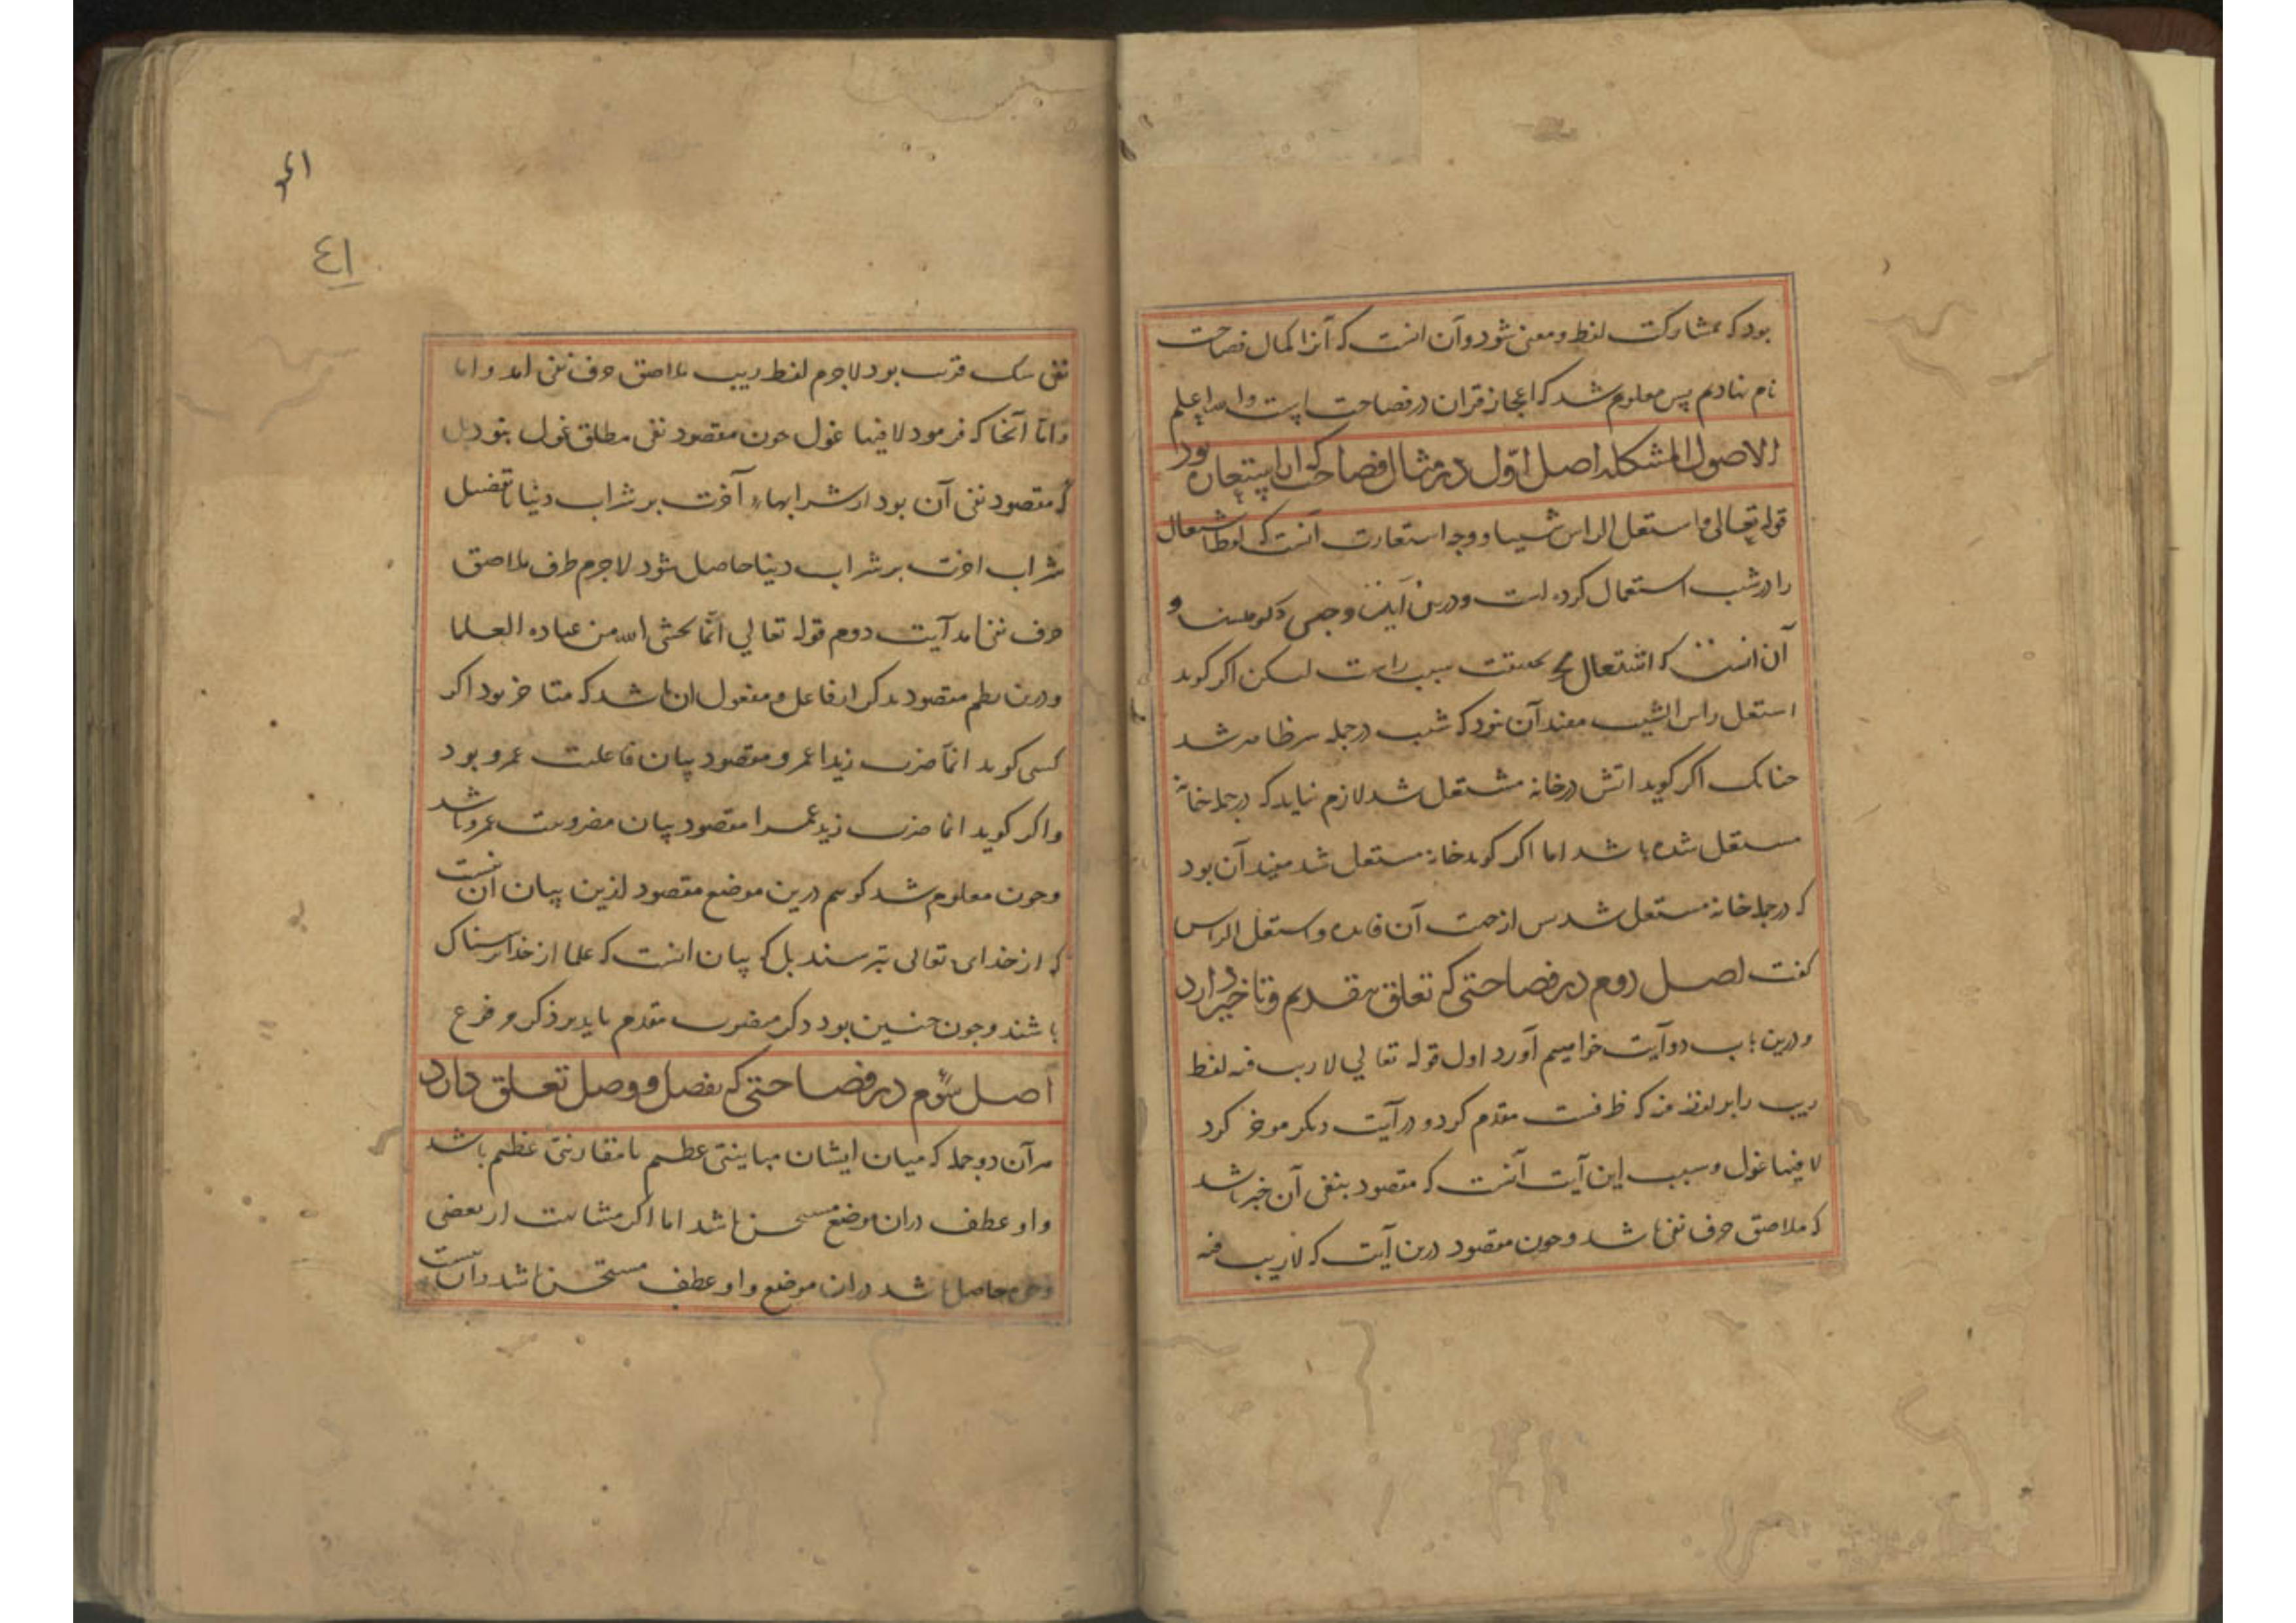 بود که بمشارکت لفظ و معنی شود و آن انست که آنرا کمال فصاحت
نام نهادیم پس معلوم شد که اعجاز قران در فصاحت است والله اعلم
الاصول المشکله اصل اوّل در مثال فصاحت که از استعاره بود
قوله تعالی و اشتعل الراس شیبا و وجه استعارت آنست که لفظ اشتعال
را در شیب استعمال کرده است و درین آیت وجهی دکر هست و
آن انست که اشتعال بحقیقت شیب راست لیکن اکر کوید
استعل راس الشیب مفید آن نبود که شیب در جمله سر ظاهر شد
چنانک اکر کوید اتش در خانه مشتعل شد لازم نیاید که در جمله خانه
مستعل شده باشد اما اکر کوید خانه مستعل شد مفید آن بود
که در جمله خانه مستعل شد پس از جهت آن فایده و استعل الراس
کفت اصل دوم در فصاحتی که تعلق بتقدیم و تاخیر دارد
و درین باب دو آیت خواهیم آورد اول قوله تعالی لا ریب فیه لفظ
ریب را بر لفظ فیه که ظرفست مقدم کرد و در آیت دیکر موخر کرد
لا فیها غول و سبب این آیت آنست که مقصود بنفی آن خبر باشد
که ملاصق حرف نفی باشد و چون مقصود درین آیت که لاریب فیه
٤١
نفی شک قرب بود لاجرم لفظ ریب ملاصق حرف نفی امد و اما
و امّا آنجا که فرمود لا فیها غول چون مقصود نفی مطلق غول نبود بل
که مقصود نفی آن بود از شرابهاء آخرت بر شراب دنیا تا تفضیل
شراب اخرت بر شراب دنیا حاصل شود لاجرم طرف ملاصق
حرف نفی امد آیت دوم قوله تعالی انّما یخشی الله من عباده العلما
و درین نظم مقصود بذکر از فاعل و مفعول ان باشد که متاخر بود اکر
کسی کوید انّما ضرب زیدا عمرو مقصود بیان فاعلیت عمرو بود
و اکر کوید انما ضرب زید عمرا مقصود بیان مضروبیت عمرو باشد
و چون معلوم شد کوییم درین موضع مقصود ازین بیان ان نیست
که از خدای تعالی بترسند بل که بیان انست که علما از خدا ترسناک
باشند و چون چنین بود ذکر منصوب مقدم باید بر ذکر مرفوع
اصل سوّم در فصاحتی که بفصل و وصل تعلق دارد
هر آن دو جمله که میان ایشان مباینتی عظیم یا مقارنتی عظیم باشد
واو عطف در ان موضع مستحسن نباشد اما اکر مشابهت از بعضی
وجوه حاصل باشد در ان موضع واو عطف مستحسن باشد و ان